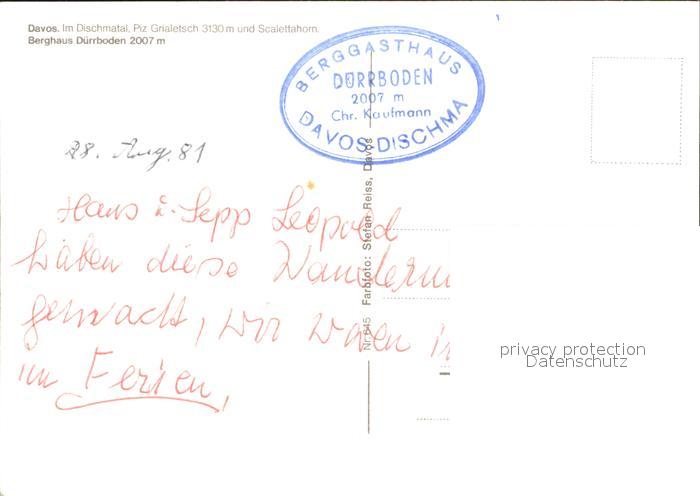 Davos. Im Dischmatal, Piz Grialetsch 3130 m und Scalettahorn.
Berghaus Dürrboden 2007 m
BERGGASTHAUS
DÜRRBODEN
2007 m
Chr. Kaufmann
DAVOS-DISCHMA
28. Aug. 81
Hans u. Sepp Leopold
haben diese
gemacht, wir waren
im Ferien,
Nr. 645 Farbfoto: Stefan Reiss, Davos
privacy protection
Datenschutz